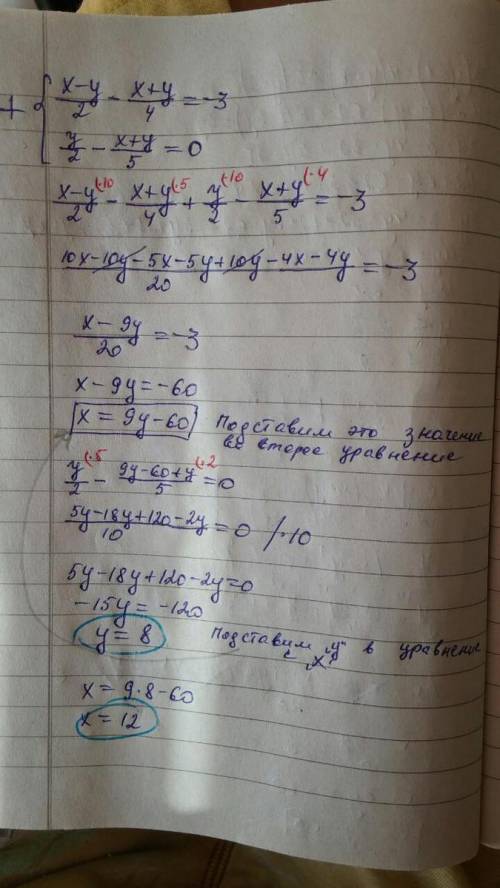 + { (x-y)/2 - (x+y)/4 = -3
y/2 - (x+y)/5 = 0
(x-y)/2 (·10 - (x+y)/4 (·5 + y/2 (·10 - (x+y)/5 (·4 = -3
(10x-10y-5x-5y+10y-4x-4y)/20 = -3
(x-9y)/20 = -3
x-9y=-60
x = 9y-60 Подставим это значение
во второе уравнение
y/2 (·5 - (9y-60+y)/5 (·2 = 0
(5y-18y+120-2y)/10 = 0 /·10
5y-18y+120-2y=0
-15y = -120
y = 8 Подставим „y" в уравнение
с „x"
x = 9·8-60
x = 12